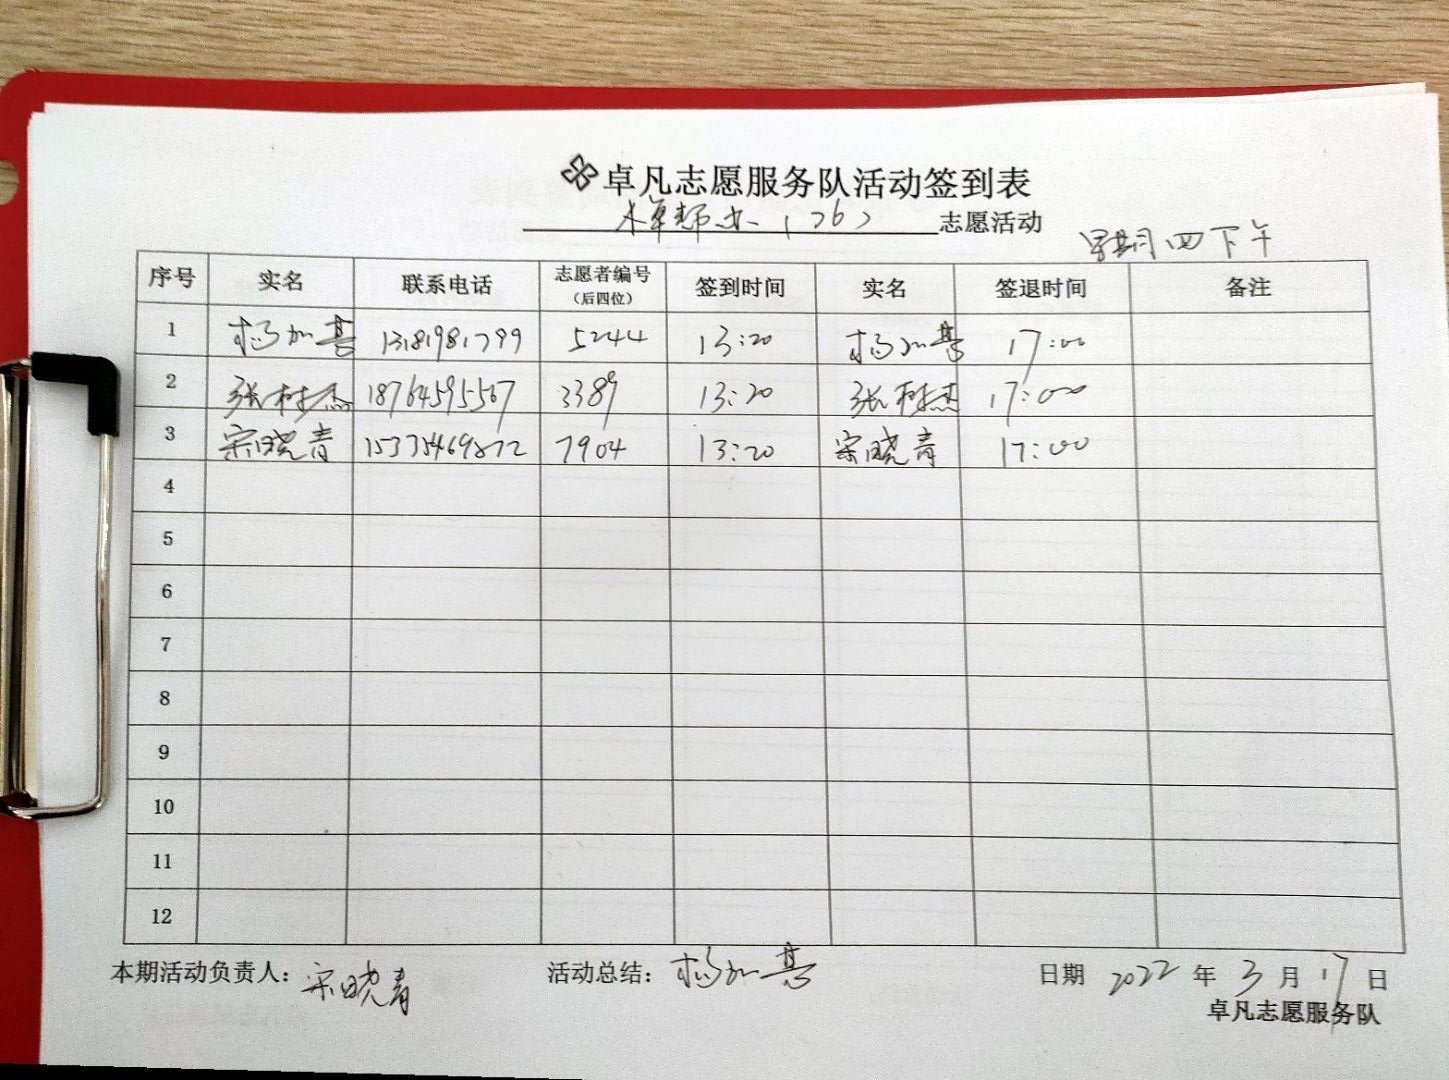 卓凡志愿服务队活动签到表
(76) 志愿活动
星期四下午
序号 实名 联系电话 志愿者编号(后四位) 签到时间 实名 签退时间 备注
1 杨加喜 13181981799 5244 13:20 杨加喜 17:00
2 张树杰 18764595567 3389 13:20 张树杰 17:00
3 宋晓青 7904 13:20 宋晓青 17:00
4
5
6
7
8
9
10
11
12
本期活动负责人:宋晓青 活动总结:杨加喜 日期 2022 年 3 月 17 日
卓凡志愿服务队